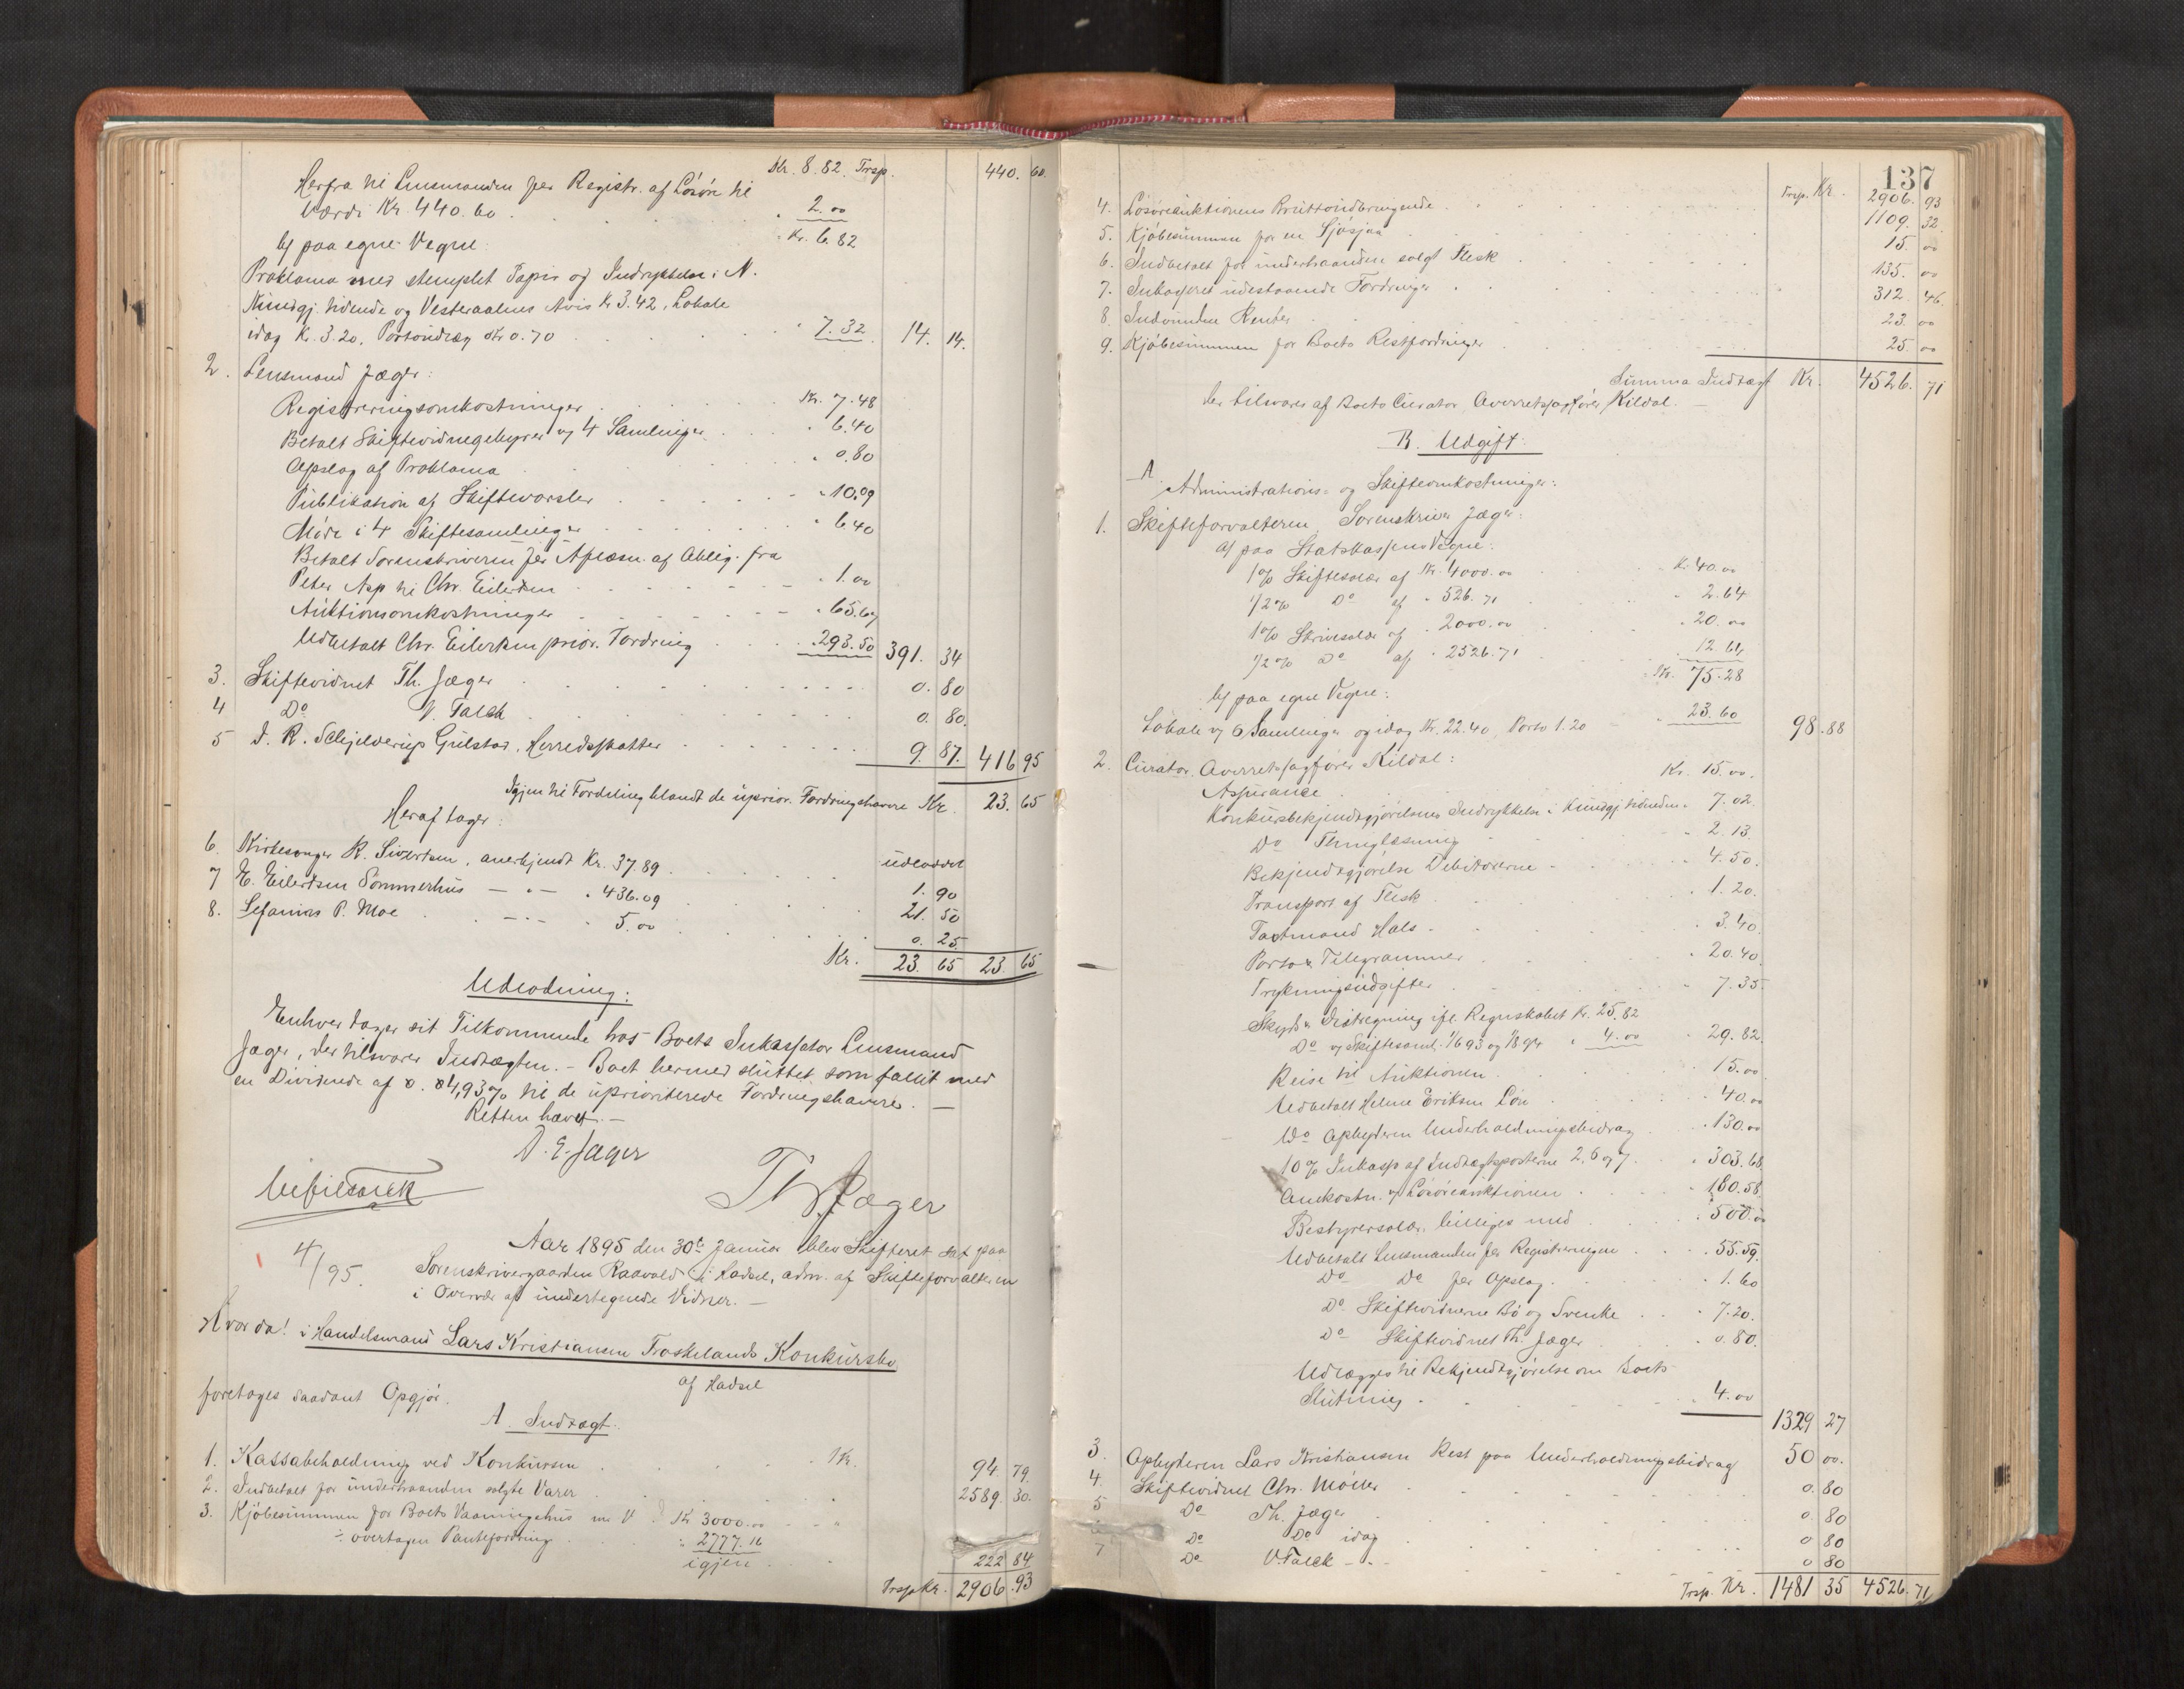 Kr. 8.82. Trsp. 440. 60.
Herfra til Lensmanden for Registr. af Løsøre til
Værdi Kr. 440.60 . . . " 2.00
b/ paa egne Vegne: " Kr. 6.82
Proklama med stemplet Papir og Indrykkelse i N.
Kundgj. tidende og Vesteraalens Avis Kr 3.42, Lokale
idag K. 3.20, Portoudlæg Kr 0.70 . . . " 7.32 14. 14.
2. Lensmand Jæger:
Registreringsomkostninger . . . Kr. 7.48
Betalt Skiftevidnegebyrer v/ 4 Samlinger . . " 6.40
Opslag af Proklama . . . " 0.80
Publikation af Skiftevarsler . . . " 10.09
Møde i 4 Skiftesamlinger . . . " 6.40
Betalt Sorenskriveren for Aflæsn. af Oblig. fra
Peter Asp til Chr. Eilertsen . . . " 1.00
Auktionsomkostninger . . . " 65.67
Udbetalt Chr. Eilertsen prior. Fordring . . " 293.50 391. 34
3. Skiftevidnet Th. Jæger . . . 0. 80
4 Do V. Falch . . . 0. 80.
5 J. R. Schjelderup Gulstad, Herredsskatter . . . 9. 87. 416 95
Igjen til Fordeling blandt de uprior. Fordringshavere Kr. 23. 65
Heraf tager: udloddet
6. Kirkesanger R. Sivertsen, anerkjendt Kr. 37.89 . . . 1. 90
7 E. Eilertsen Sommerhus — " — " 436.09 . . . 21. 50
8. Sefanias P. Moe . . — " — " 5.00 . . . 0. 25.
Kr. 23. 65 23. 65
Udlodning:
Enhver tager sit Tilkommende hos Boets Inkassator Lensmand
Jæger, der tilsvarer Indtægten. – Boet hermed sluttet som fallit med
en Dividende af 0.04,93 % til de uprioriterede Fordringshavere. —
Retten hævet. —
D. E. Jæger
Th. Jæger
4/95.
Aar 1895 den 30te Januar blev Skifteret sat paa
Sorenskrivergaarden Raavold i Hadsel, adm. af Skifteforvalteren
i Overvær af undertegnede Vidner. —
Hvor da! i Handelsmand Lars Kristiansen Froskelands Konkursbo
af Hadsel
foretages saadant Opgjør.
A. Indtægt.
1. Kassabeholdning ved Konkursen . . . Kr. 94. 79.
2. Indbetalt for underhaanden solgte Varer . . . 2589. 30.
3. Kjøbesummen for Boets Vaaningshus m. V. Kr 3000.00
÷ overtagen Pantefordring . . " 2777.16
igjen . . . 222 84.
Trsp Kr. 2906. 93
137
Trsp. Kr. 2906. 93
4. Løsøreauktionens Bruttoindbringende . . . 1109. 32.
5. Kjøbesummen for en Sjøsjaa . . . 15. 00
6. Indbetalt for underhaanden solgt Flesk . . . 135. 00
7. Inkasseret udestaaende Fordringer . . . 312. 46.
8. Indvundne Renter . . . 23. 00
9. Kjøbesummen for Boets Restfordringer . . . 25. 00
Summa Indtægt Kr. 4526. 71
der tilsvares af Boets Curator, Overretssagfører Kildal. —
B. Udgift.
A
Administrations- og Skifteomkostninger:
1. Skifteforvalteren, Sorenskriver Jæger:
a/ paa Statskassens Vegne:
1% Skiftesalær af Kr. 4000.00 . . . Kr. 40.00
1/2% Do af " 526.71 . . . " 2.64
1% Skrivesalær af " 2000.00 . . . " 20.00
1/2% Do af " 2526.71 . . . 12.64
Kr. 75.28
b/ paa egne Vegne:
Lokale v/ 6 Samlinger og idag Kr. 22.40, Porto 1.20 " 23.60 98. 88
2. Curator, Overretssagfører Kildal:
Assurance . . . Kr. 15.00.
Konkursbekjendtgjørelsens Indrykkelse i Kundgj. tidenden " 7.02.
Do Thinglæsning . . . " 2.13
Bekjendtgjørelse Debitorerne . . . " 4.50.
Transport af Flesk . . . " 1.20.
Taxtmand Hals . . . " 3.40.
Porto & Telegrammer . . . " 20.40.
Trykningsudgifter . . . " 7.35.
Skyds & Diætregning ifl. Regnskabet Kr. 25.82
Do v/ Skiftesaml. 1/6 93 og 1/8 94 " 4.00 " 29.82.
Reise til Auktionen . . . " 15.00
Udbetalt Helene Eriksen Løn . . . " 40.00
Do Opbyderen Underholdningsbidrag . . " 130.00
10% Inkasso af Indtægtsposterne 2, 6 og 7 . . " 303.68.
Omkostn. v/ Løsøreauktionen . . . " 180.58.
Bestyrersalær, billiges med . . . " 500.00
Udbetalt Lensmanden for Registreringen . . . " 55.59.
Do Do for Opslag . . . " 1.60
Do Skiftevidnerne Bø og Svenke . . . " 7.20.
Do Skiftevidnet Th. Jæger . . . " 0.80.
Udlægges til Bekjendtgjørelse om Boets
Slutning . . . " 4.00 1329 27
3. Opbyderen Lars Kristiansen Rest paa Underholdningsbidrag 50 00.
4. Skiftevidnet Chr. Møller . . . 0. 80
5 Do Th. Jæger . . . 0. 80
Do Do idag . . . 0 80
7 Do V. Falck - " - . . . 0 80
Trsp. Kr. 1481 35 4526. 71